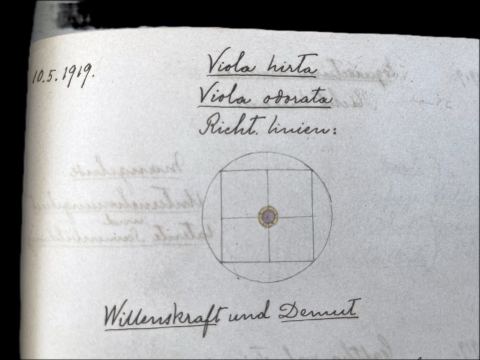 10.5.1919.
Viola hirta
Viola odorata
Richt. linien:
Willenskraft und Demut